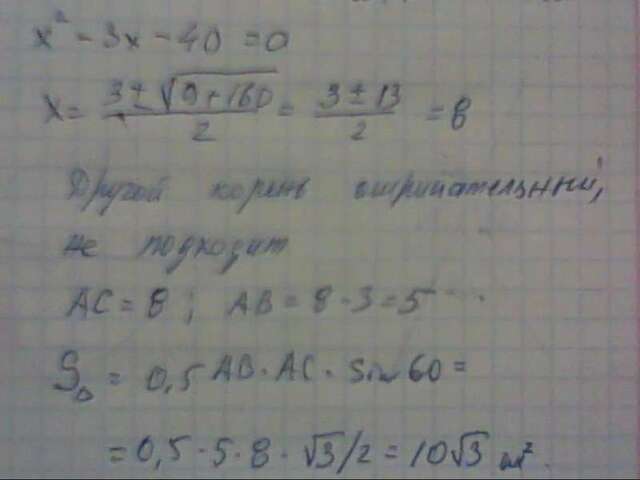 x² - 3x - 40 = 0
x = 3 ± √9+160 / 2 = 3 ± 13 / 2 = 8
Другой корень отрицательный,
не подходит
AC = 8; AB = 8 - 3 = 5
S△ = 0,5 AB · AC · Sin 60 =
= 0,5 · 5 · 8 · √3/2 = 10√3 см².